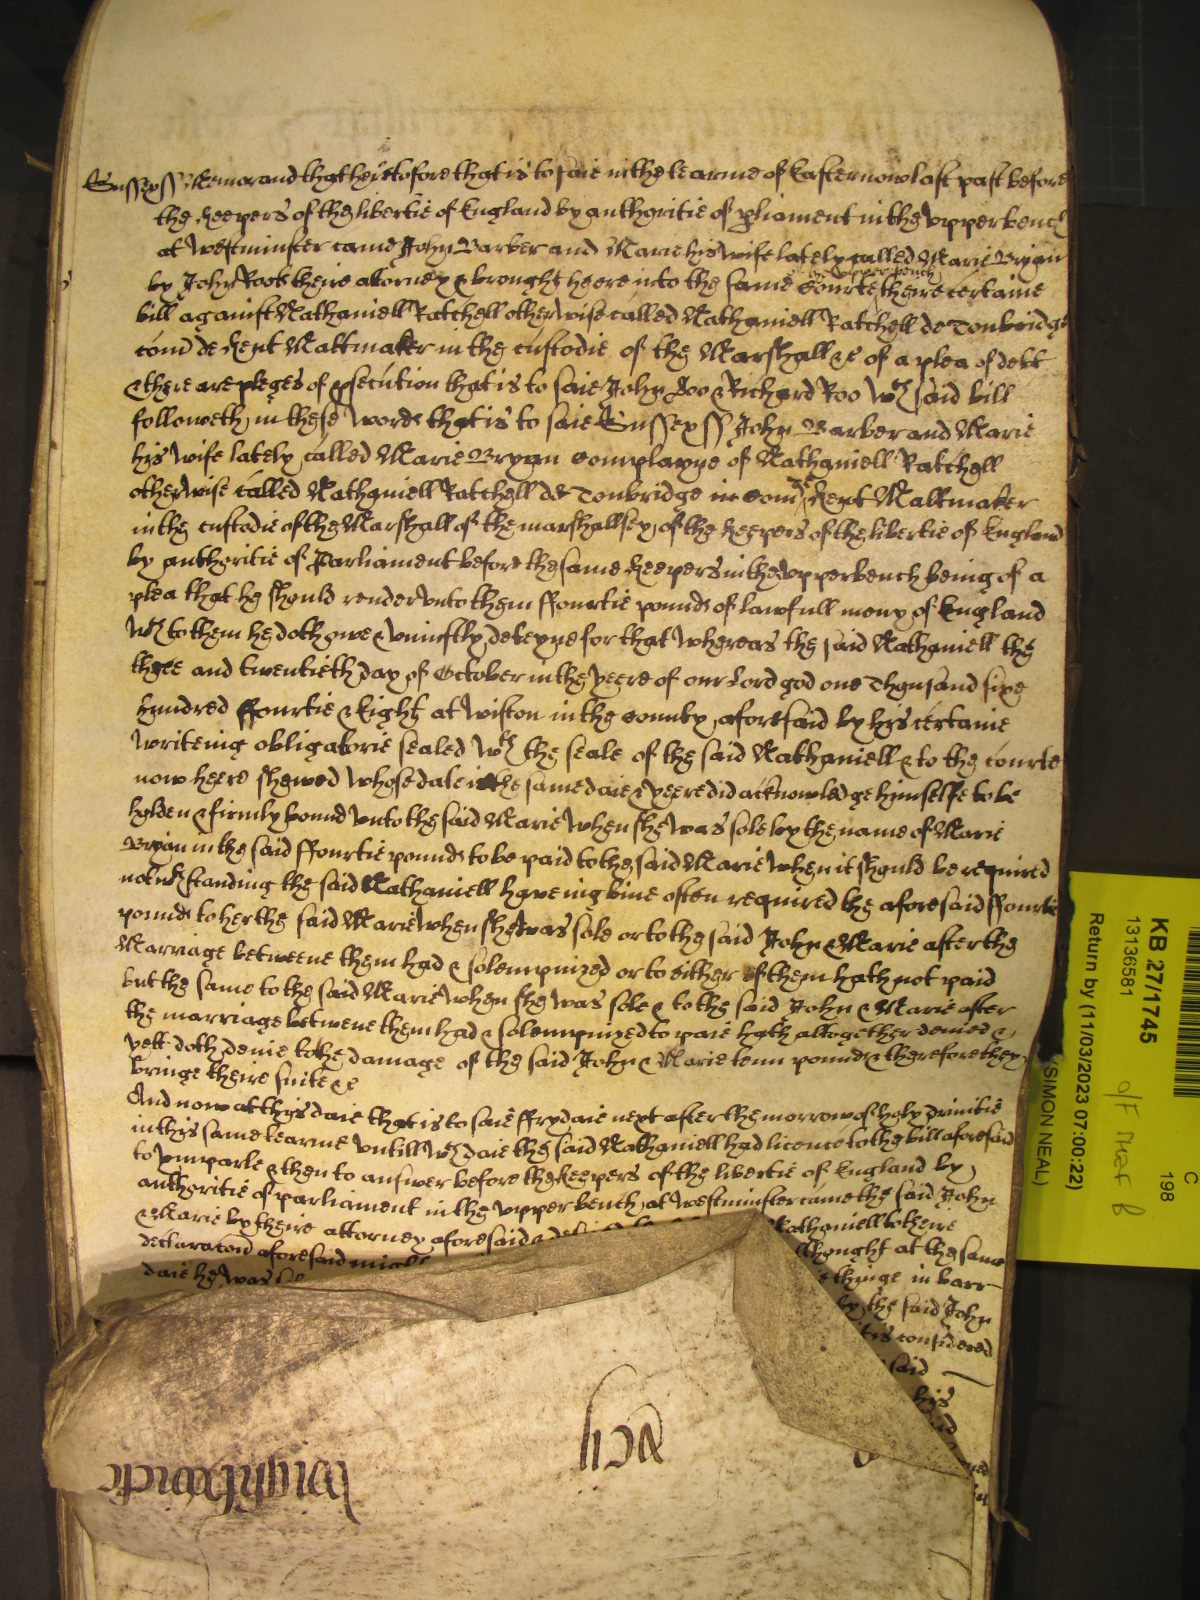 Sussex ss Memorand that heretofore that is to saie in the tearme of Easter now last past before
the Keepers of the libertie of England by authoritie of pliament in the upper bench
at Westminster came John Barber and Marie his wife lately called Marie Bryan
by John Roots theire attorney & brought heere into the same Courte theire certaine
upper bench
bill against Nathaniell Ratchell otherwise called Nathaniell Ratchell de Tonbridge
com de Kent Maltmaker in the custodie of the Marshall &c of a plea of debt
& there are pleges of psecution that is to saie John Doo & Richard Roo wch said bill
followeth in these words that is to saie Sussex ss John Barber and Marie
his wife lately called Marie Bryan Complayne of Nathaniell Ratchell
otherwise called Nathaniell Ratchell de Tonbridge in Com de Kent Maltmaker
in the custodie of the Marshall of the marshallsey of the Keepers of the libertie of England
by authoritie of Parliament before the same Keepers in the upper bench being of a
plea that he should render unto them ffourtie pounds of lawfull mony of England
wch to them he doth owe & uniustly deteyne for that whereas the said Nathaniell the
three and twentieth day of October in the yeere of our Lord god one Thousand sixe
hundred ffourtie & Eight at Wiston in the County aforesaid by his certaine
writeing obligatorie sealed wth the seale of the said Nathaniell & to the courte
now heere shewed whose date is the same daie & yeere did acknowledge himselfe to be
holden & firmly bound unto the said Marie when she was sole by the name of Marie
Bryan in the said ffourtie pounds to be paid to the said Marie when it should be required
notwthstanding the said Nathaniell haveing bine often required the aforesaid ffourtie
pounds to her the said Marie when she was sole or to the said John & Marie after the
Marriage betweene them had & solempnized or to either of them hath not paid
but the same to the said Marie when she was sole & to the said John & Marie after
the marriage betwene them had & solempnized to paie hath altogether denied &
yett doth denie to the damage of the said John & Marie tenn pounds & therefore they
bringe theire suite &c
And now at this daie that is to saie ffrydaie next after the morrow of holy Trinitie
in this same tearme untill wch daie the said Nathaniell had licence to the bill aforesaid
to ymparle & then to answer before the Keepers of the libertie of England by
authoritie of parliament in the upper bench at Westminster came the said John
& Marie by theire attorney aforesaid & Nathaniell to theire
declaracon aforesaid might allthought at the same
daie he was thinge in barr
by the said John
tis considered
said
his
Brightwicke
KB 27/1745
13136581
Return by (11/03/2023 07:00:22)
(SIMON NEAL)
C
198